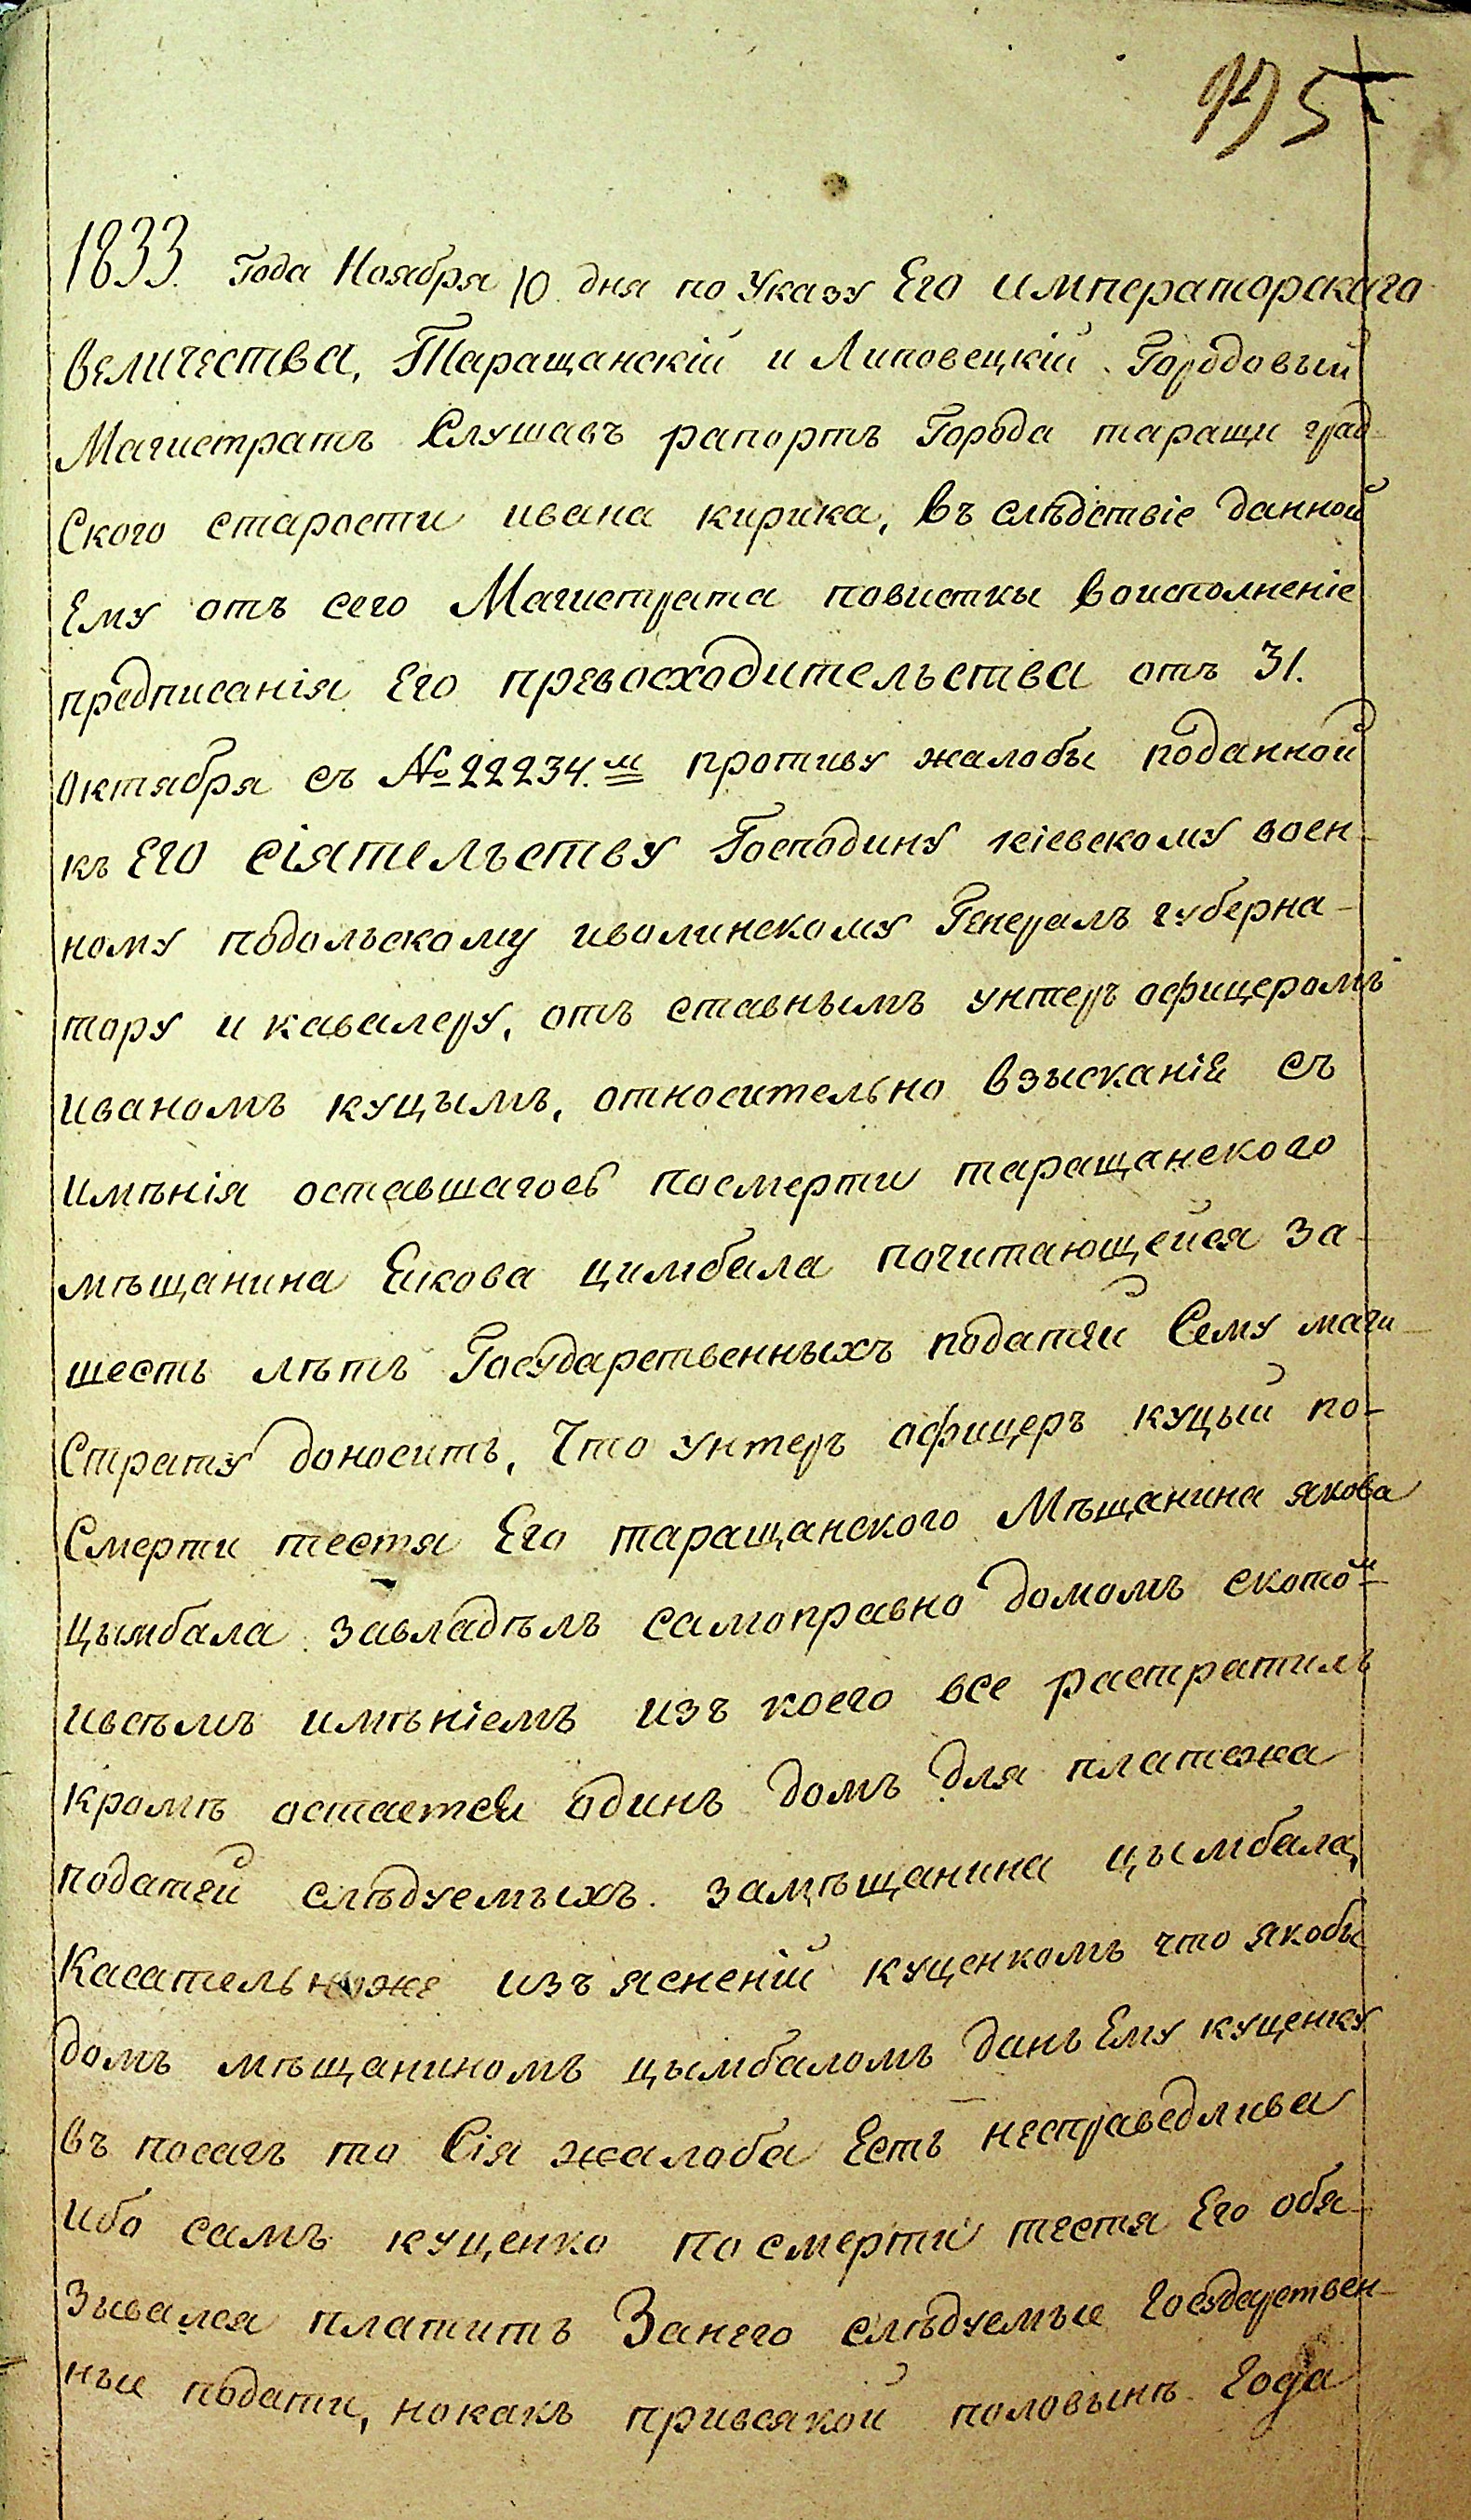 1833. Года Ноября 10 дня по Указу Его императорскаго
величества, Таращанскій и Липовецкій Городовый
Магистратъ Слушавъ рапортъ Города таращи град-
Ского старости ивана кирика, въ слѣдствіе данной
Ему отъ сего Магистрата повистки воисполненіе
предписанія Его превосходительства отъ 31.
октября съ №22234.м противу жалобы поданной
къ Его сіятельству Господину кіевскому воен-
ному подольскому иволинскому Генералъ губерна-
тору и кавалеру, отъ ставнымъ унтеръ офицеромъ
иваномъ куцымъ, относительно взысканіе съ
имѣнія оставшагось посмерти таращанского
мѣщанина Якова цимбала почитающейся за-
шесть лѣтъ Государственныхъ податей Сему маги-
Страту доноситъ, Что унтеръ офицеръ куцый по-
Смерти тестя Его таращанского Мѣщанина якова
цымбала завладѣлъ самоправно домомъ скотом-
ивсѣмъ имѣніемъ изъ коего все растратилъ
кромѣ остается одинъ домъ для платежа
податей слѣдуемыхъ замѣщанина цымбала,
Касательноже изъясненій куценкомъ что якобы
домъ мѣщаниномъ цымбаломъ данъ Ему куценку
въ посагъ то Сія жалоба Есть несправедлива
ибо самъ куценко по смерти тестя Его обя-
зывался платитъ Занего слѣдуемые Государствен-
ные подати, нокакъ привсякой половынѣ Года